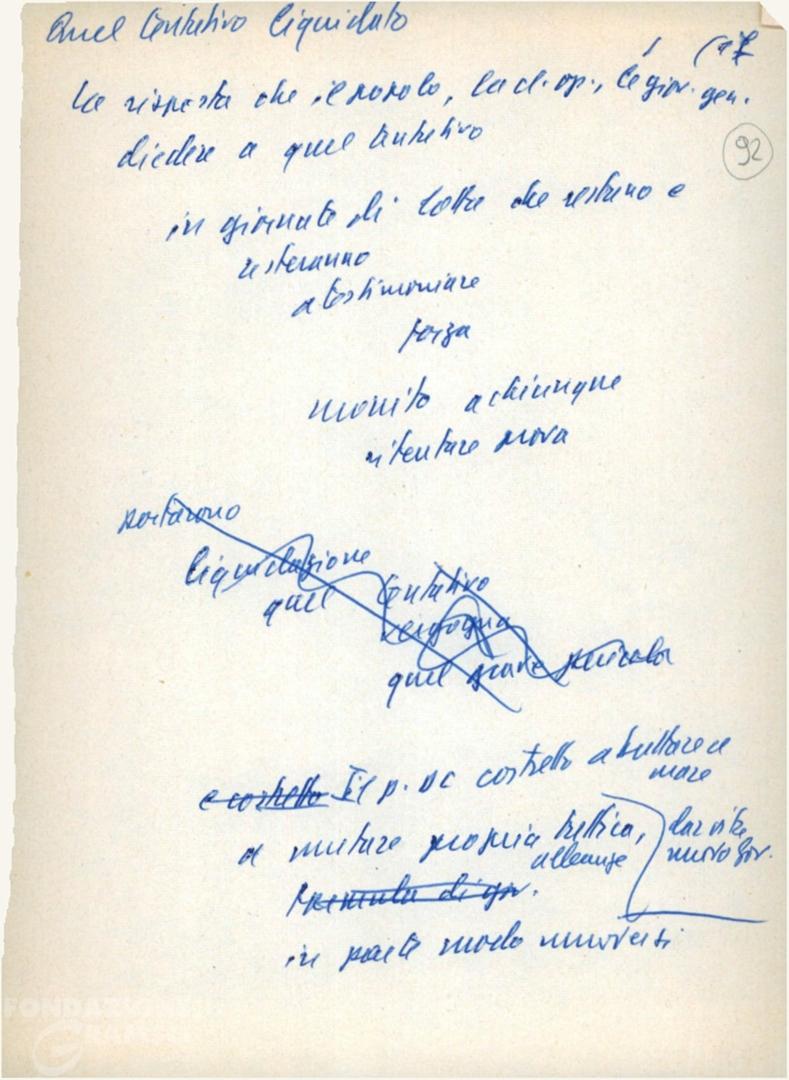 Quel tentativo liquidato
La risposta che il popolo, la cl. op., le giov. gen.
diedere a quel tentativo
92
in giornate di lotta che restano e
resteranno
a testimoniare
forza
monito a chiunque
ritentare prova
portarono
liquidazione
quel tentativo
vergogna
quel grave pericolo
e costretto Il p. DC costretto a buttare a
mare
a mutare propria tattica, dar vita
alleanze nuovo gov.
formula di gov.
in parte modo muoversi
FONDAZIONE
GRAMSCI